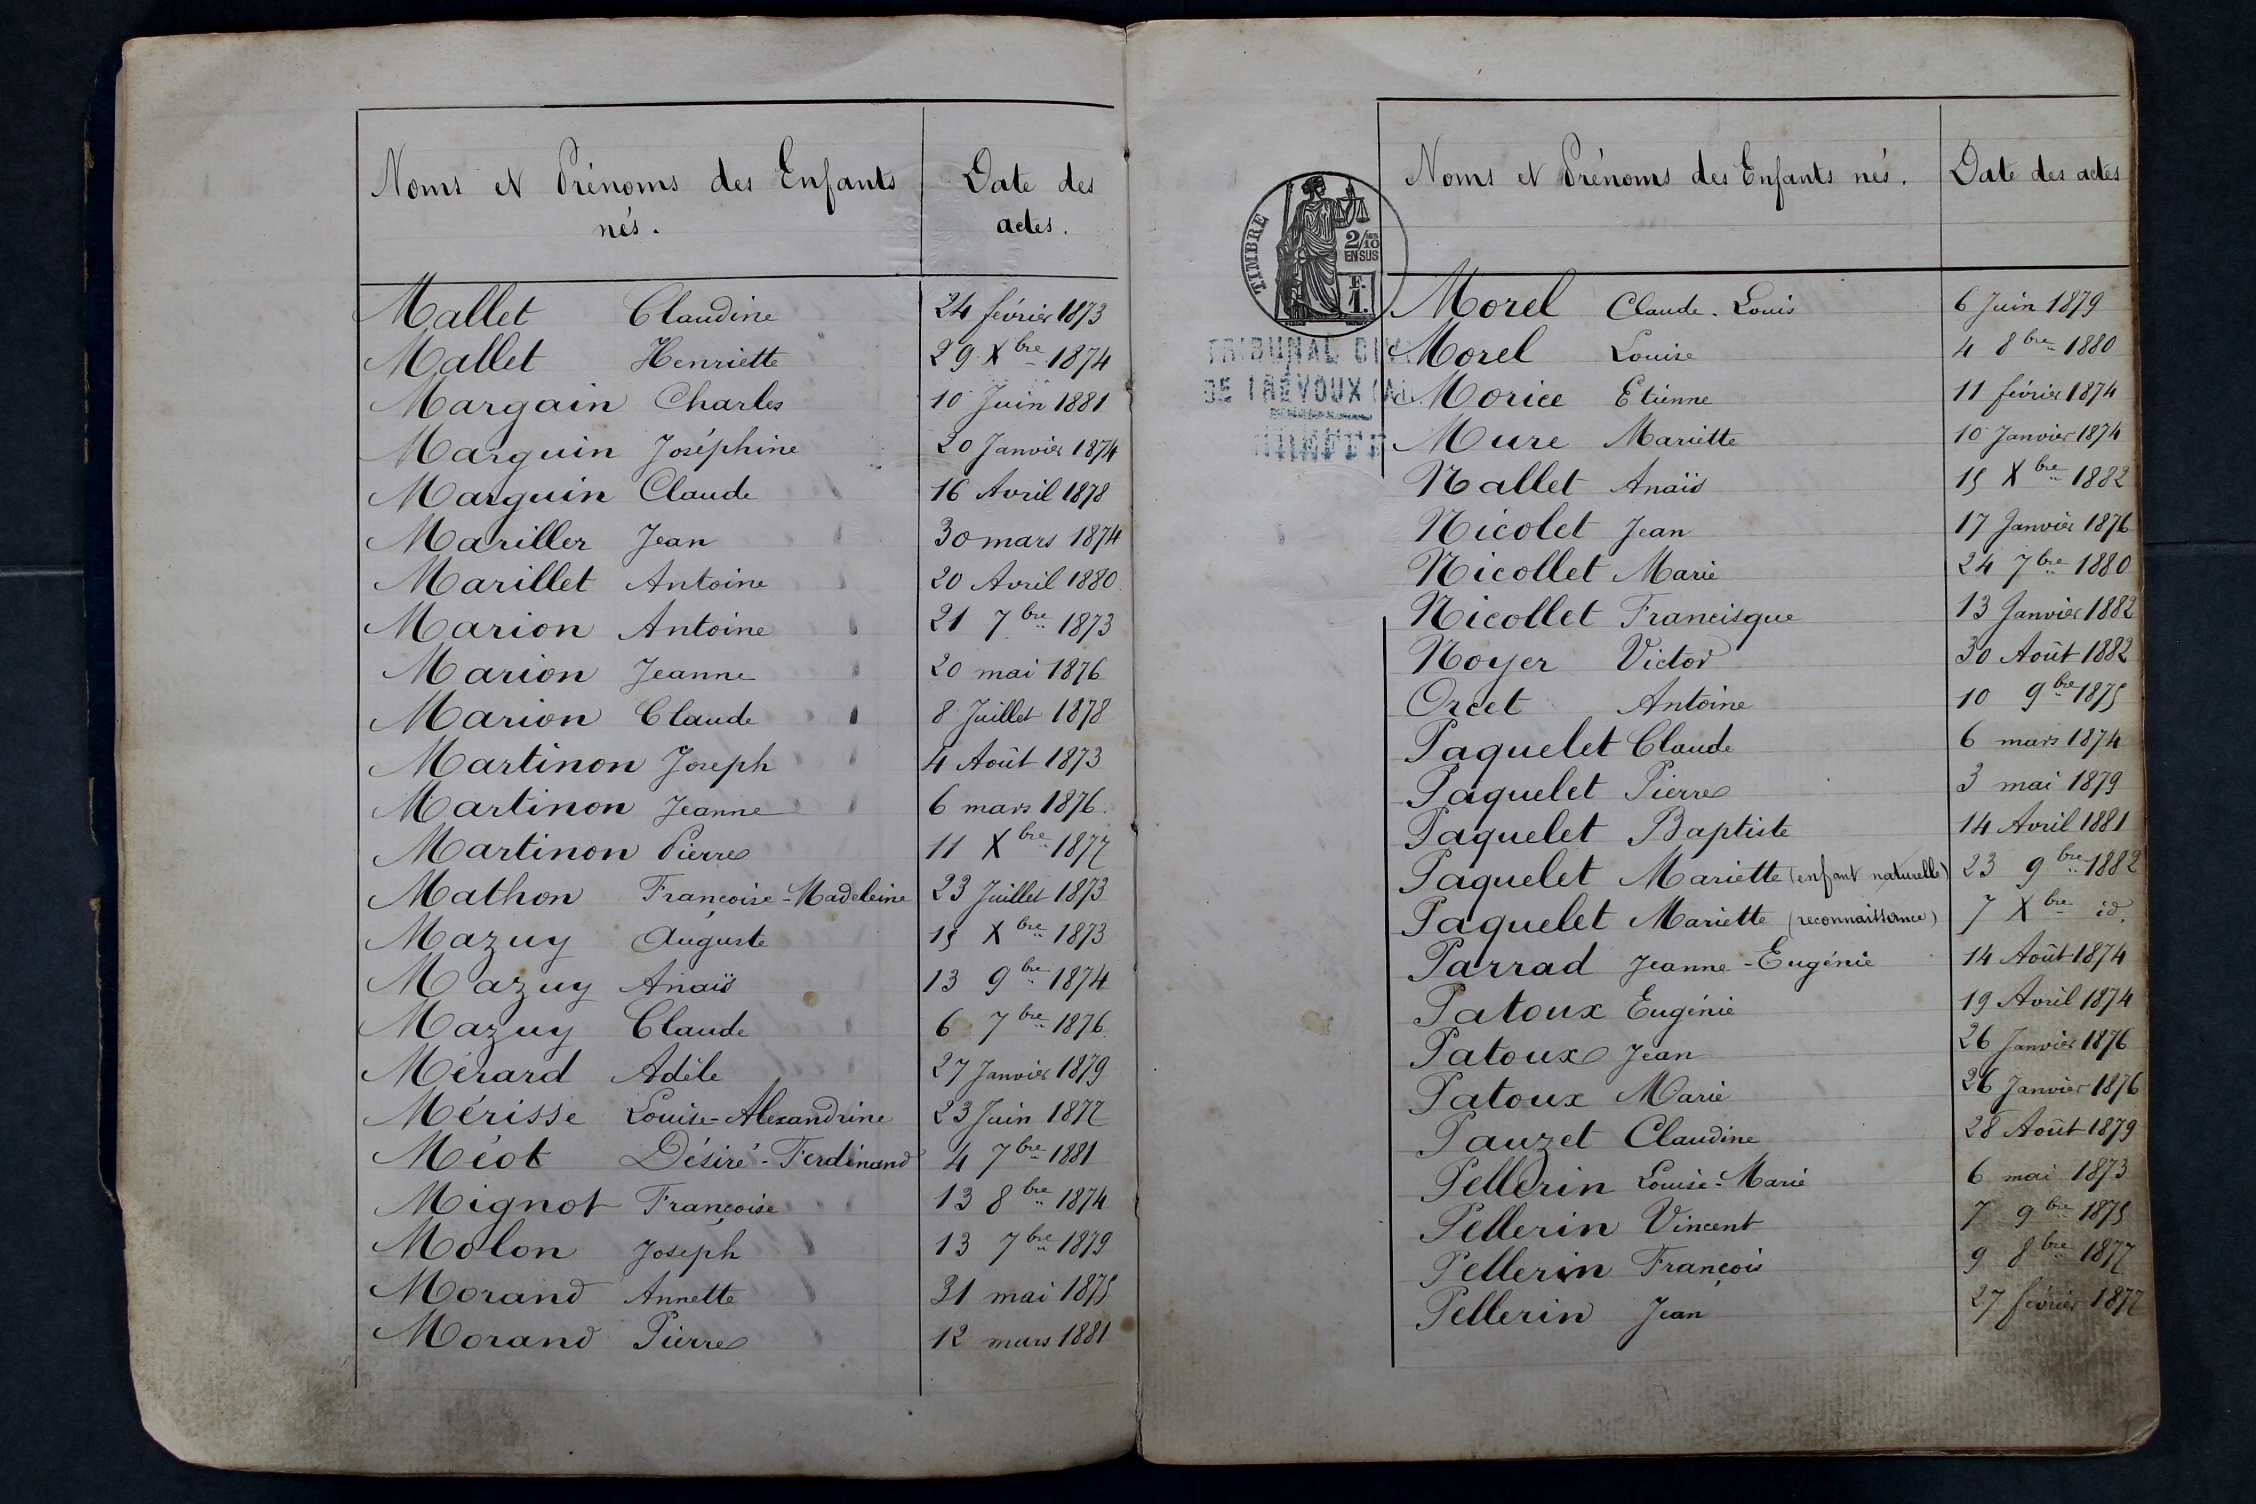 Noms et Prénoms des Enfants
nés.
Date des
actes.
Mallet Claudine 24 février 1873
Mallet Henriette 29 Xbre 1874
Margain Charles 10 Juin 1881
Marguin Joséphine 20 Janvier 1874
Marguin Claude 16 Avril 1878
Mariller Jean 30 mars 1874
Marillet Antoine 20 Avril 1880
Marion Antoine 21 7bre 1873
Marion Jeanne 20 mai 1876
Marion Claude 8 Juillet 1878
Martinon Joseph 4 Août 1873
Martinon Jeanne 6 mars 1876.
Martinon Pierre 11 Xbre 1877
Mathon Françoise-Madeleine 23 Juillet 1873
Mazuy Auguste 15 Xbre 1873
Mazuy Anaïs 13 9bre 1874
Mazuy Claude 6 7bre 1876
Mérard Adèle 27 Janvier 1879
Mérisse Louise-Alexandrine 23 Juin 1877
Méot Désiré-Ferdinand 4 7bre 1881
Mignot Françoise 13 8bre 1874
Molon Joseph 13 7bre 1879
Morand Annette 31 mai 1875
Morand Pierre 12 mars 1881
Noms et Prénoms des Enfants nés.
Date des actes
TIMBRE
2/10
EN SUS
1 F.
TRIBUNAL CIVI
DE TRÉVOUX (AI
Morel Claude-Louis 6 Juin 1879
Morel Louise 4 8bre 1880
Morice Etienne 11 février 1874
Mure Mariette 10 Janvier 1874
Nallet Anaïs 15 Xbre 1882
Nicolet Jean 17 Janvier 1876
Nicollet Marie 24 7bre 1880
Nicollet Francisque 13 Janvier 1882
Noyer Victor 30 Août 1882
Orcet Antoine 10 9bre 1875
Paquelet Claude 6 mars 1874
Paquelet Pierre 3 mai 1879
Paquelet Baptiste 14 Avril 1881
Paquelet Mariette (enfant naturelle) 23 9bre 1882
Paquelet Mariette (reconnaissance) 7 Xbre id.
Parrad Jeanne-Eugénie 14 Août 1874
Patoux Eugénie 19 Avril 1874
Patoux Jean 26 Janvier 1876
Patoux Marie 26 Janvier 1876
Pauzet Claudine 28 Août 1879
Pellerin Louise-Marie 6 mai 1873
Pellerin Vincent 7 9bre 1875
Pellerin François 9 8bre 1877
Pellerin Jean 27 février 1877